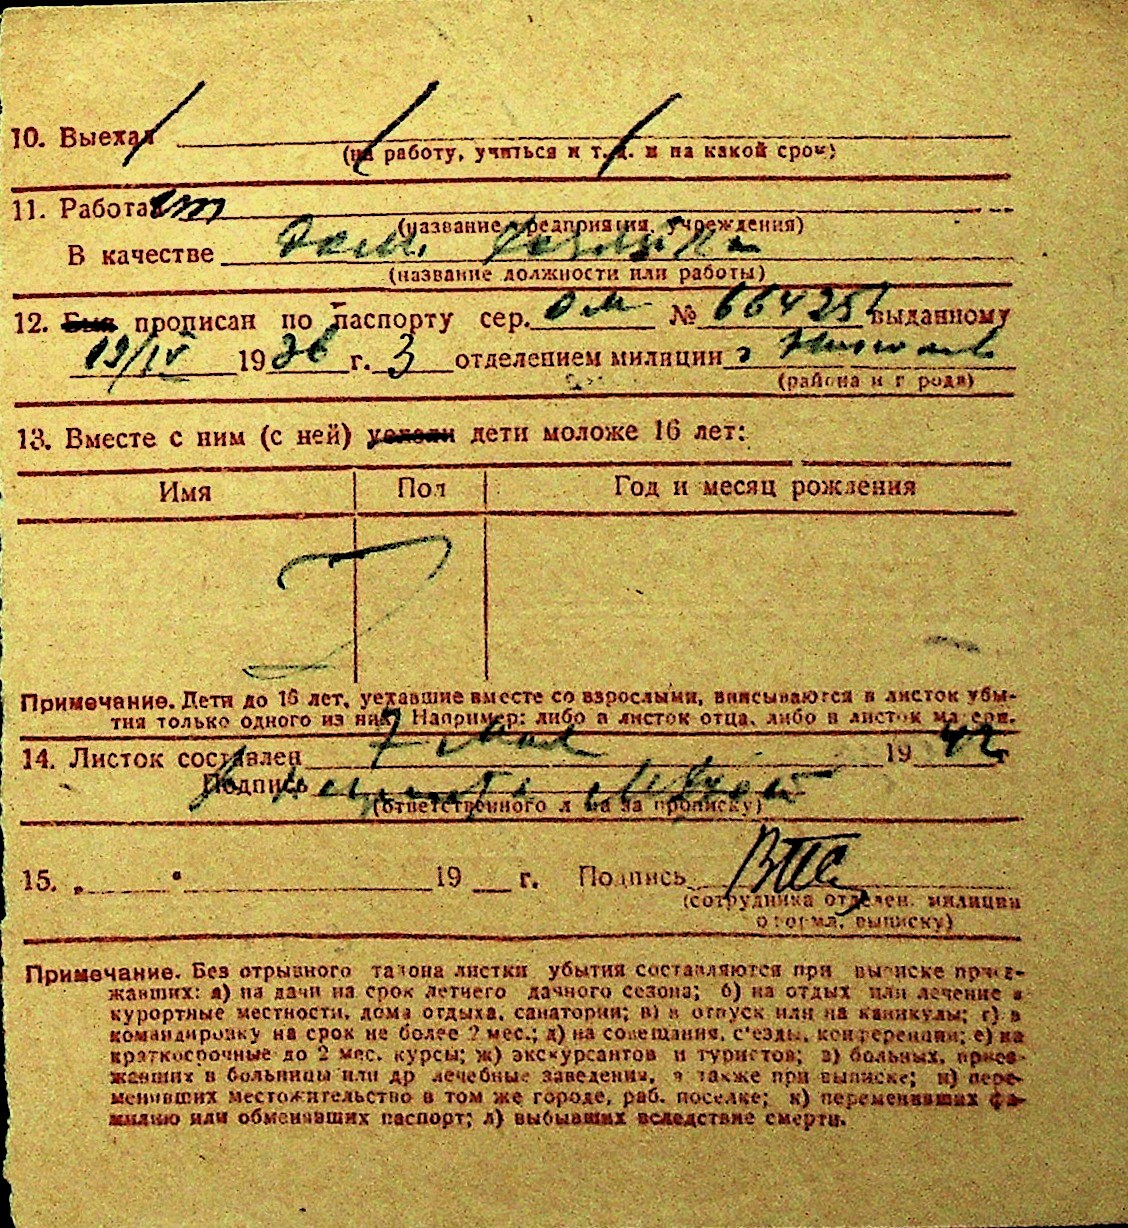 10. Выехал
(на работу, учиться и т. д. и на какой срок)
11. Работает
(название предприятия, учреждения)
В качестве Дом. хозяйка
(название должности или работы)
12. Был прописан по паспорту сер. № 664251 выданному
19/IV 1936 г. 3 отделением милиции г
(района и города)
13. Вместе с ним (с ней) уехали дети моложе 16 лет:
Имя Пол Год и месяц рождения
Примечание. Дети до 16 лет, уехавшие вместе со взрослыми, вписываются в листок убы-
тия только одного из них. Например: либо в листок отца, либо в листок матери.
14. Листок составлен 7 мая 1942 г.
Подпись
(ответственного лица за прописку)
15. „ " 19 г. Подпись
(сотрудника отделен. милиции
оформл. выписку)
Примечание. Без отрывного талона листки убытия составляются при выписке приез-
жавших: а) на дачи на срок летнего дачного сезона; б) на отдых или лечение в
курортные местности, дома отдыха, санатории; в) в отпуск или на каникулы; г) в
командировку на срок не более 2 мес.; д) на совещания, с'езды, конференции; е) на
краткосрочные до 2 мес. курсы; ж) экскурсантов и туристов; з) больных, приез-
жавших в больницы или др лечебные заведения, а также при выписке; и) пере-
менивших местожительство в том же городе, раб. поселке; к) переменивших фа-
милию или обменивших паспорт; л) выбывших вследствие смерти.